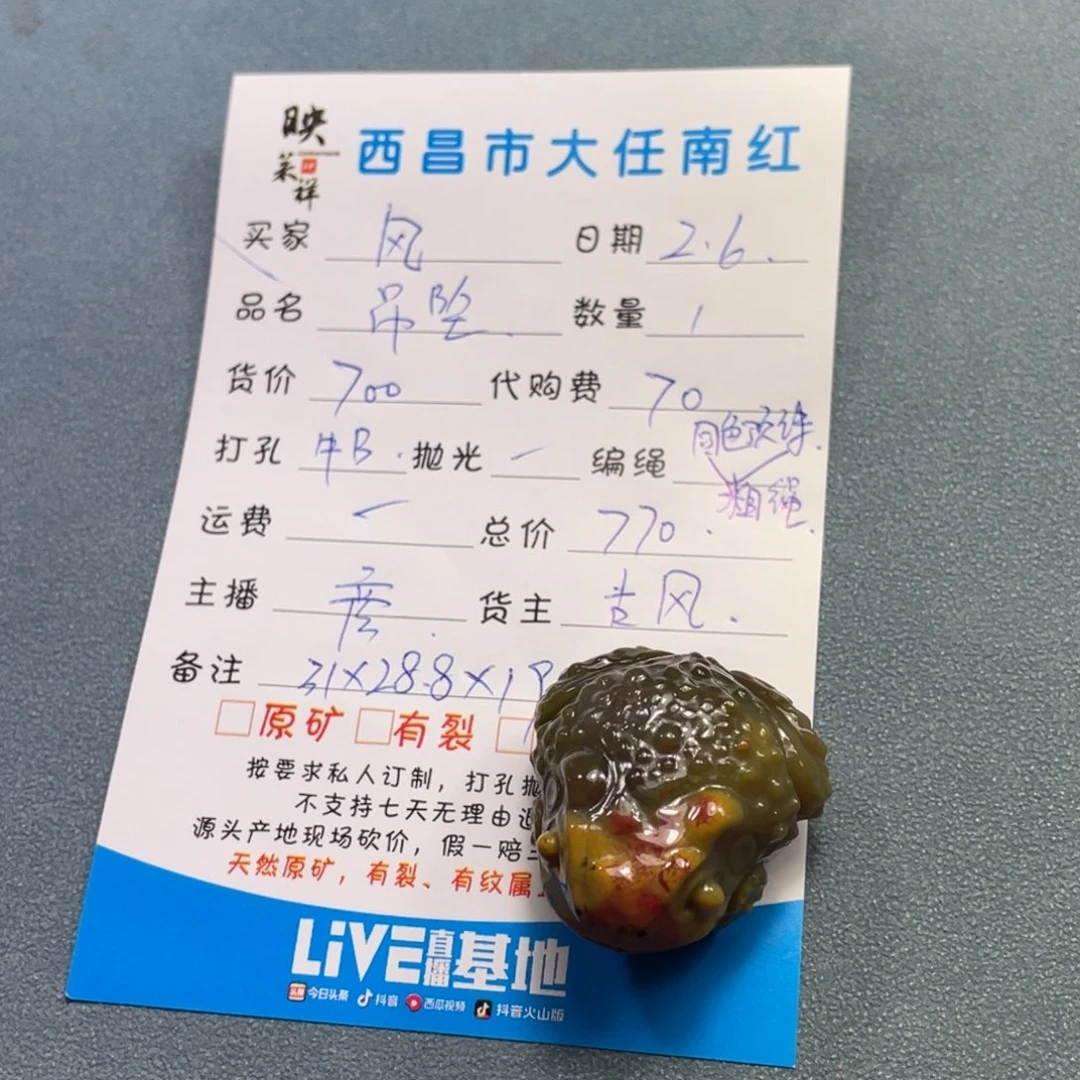 映
莱祥
西昌市大任南红
买家 风 日期 2.6.
品名 吊坠. 数量 1
货价 700 代购费 70
打孔 牛B. 抛光 一 编绳 同色顶珠.
粗绳.
运费 总价 770.
主播 货主 吉风.
备注 31×28.8×19
□原矿 □有裂 □
按要求私人订制，打孔抛
不支持七天无理由退
源头产地现场砍价，假一赔三
天然原矿，有裂、有纹属
LiVE直播基地
头条 今日头条 抖音 西瓜视频 抖音火山版